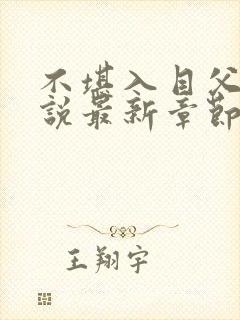 不堪入目父
說最新章節
王翔宇